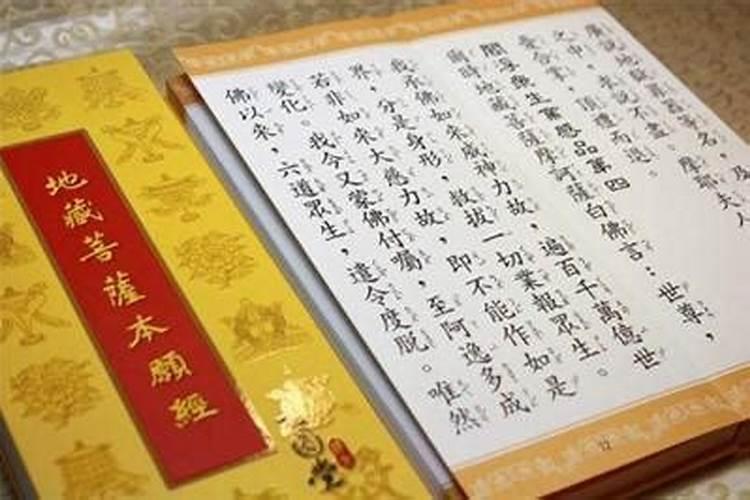 廣說地獄罪報等名，及
之中，求說不盡。摩耶夫人
憂合掌，頂禮而退。
閻浮眾生業感品第四
爾時地藏菩薩摩訶薩白佛言：世尊，
我承佛如來威神力故，遍百千萬億世
界，分是身形，救拔一切業報眾生。
若非如來大慈力故，即不能作如是
變化。我今又蒙佛付囑，至阿逸多成
佛以來，六道眾生，遣令度脫。唯然
12
地藏菩薩本願經